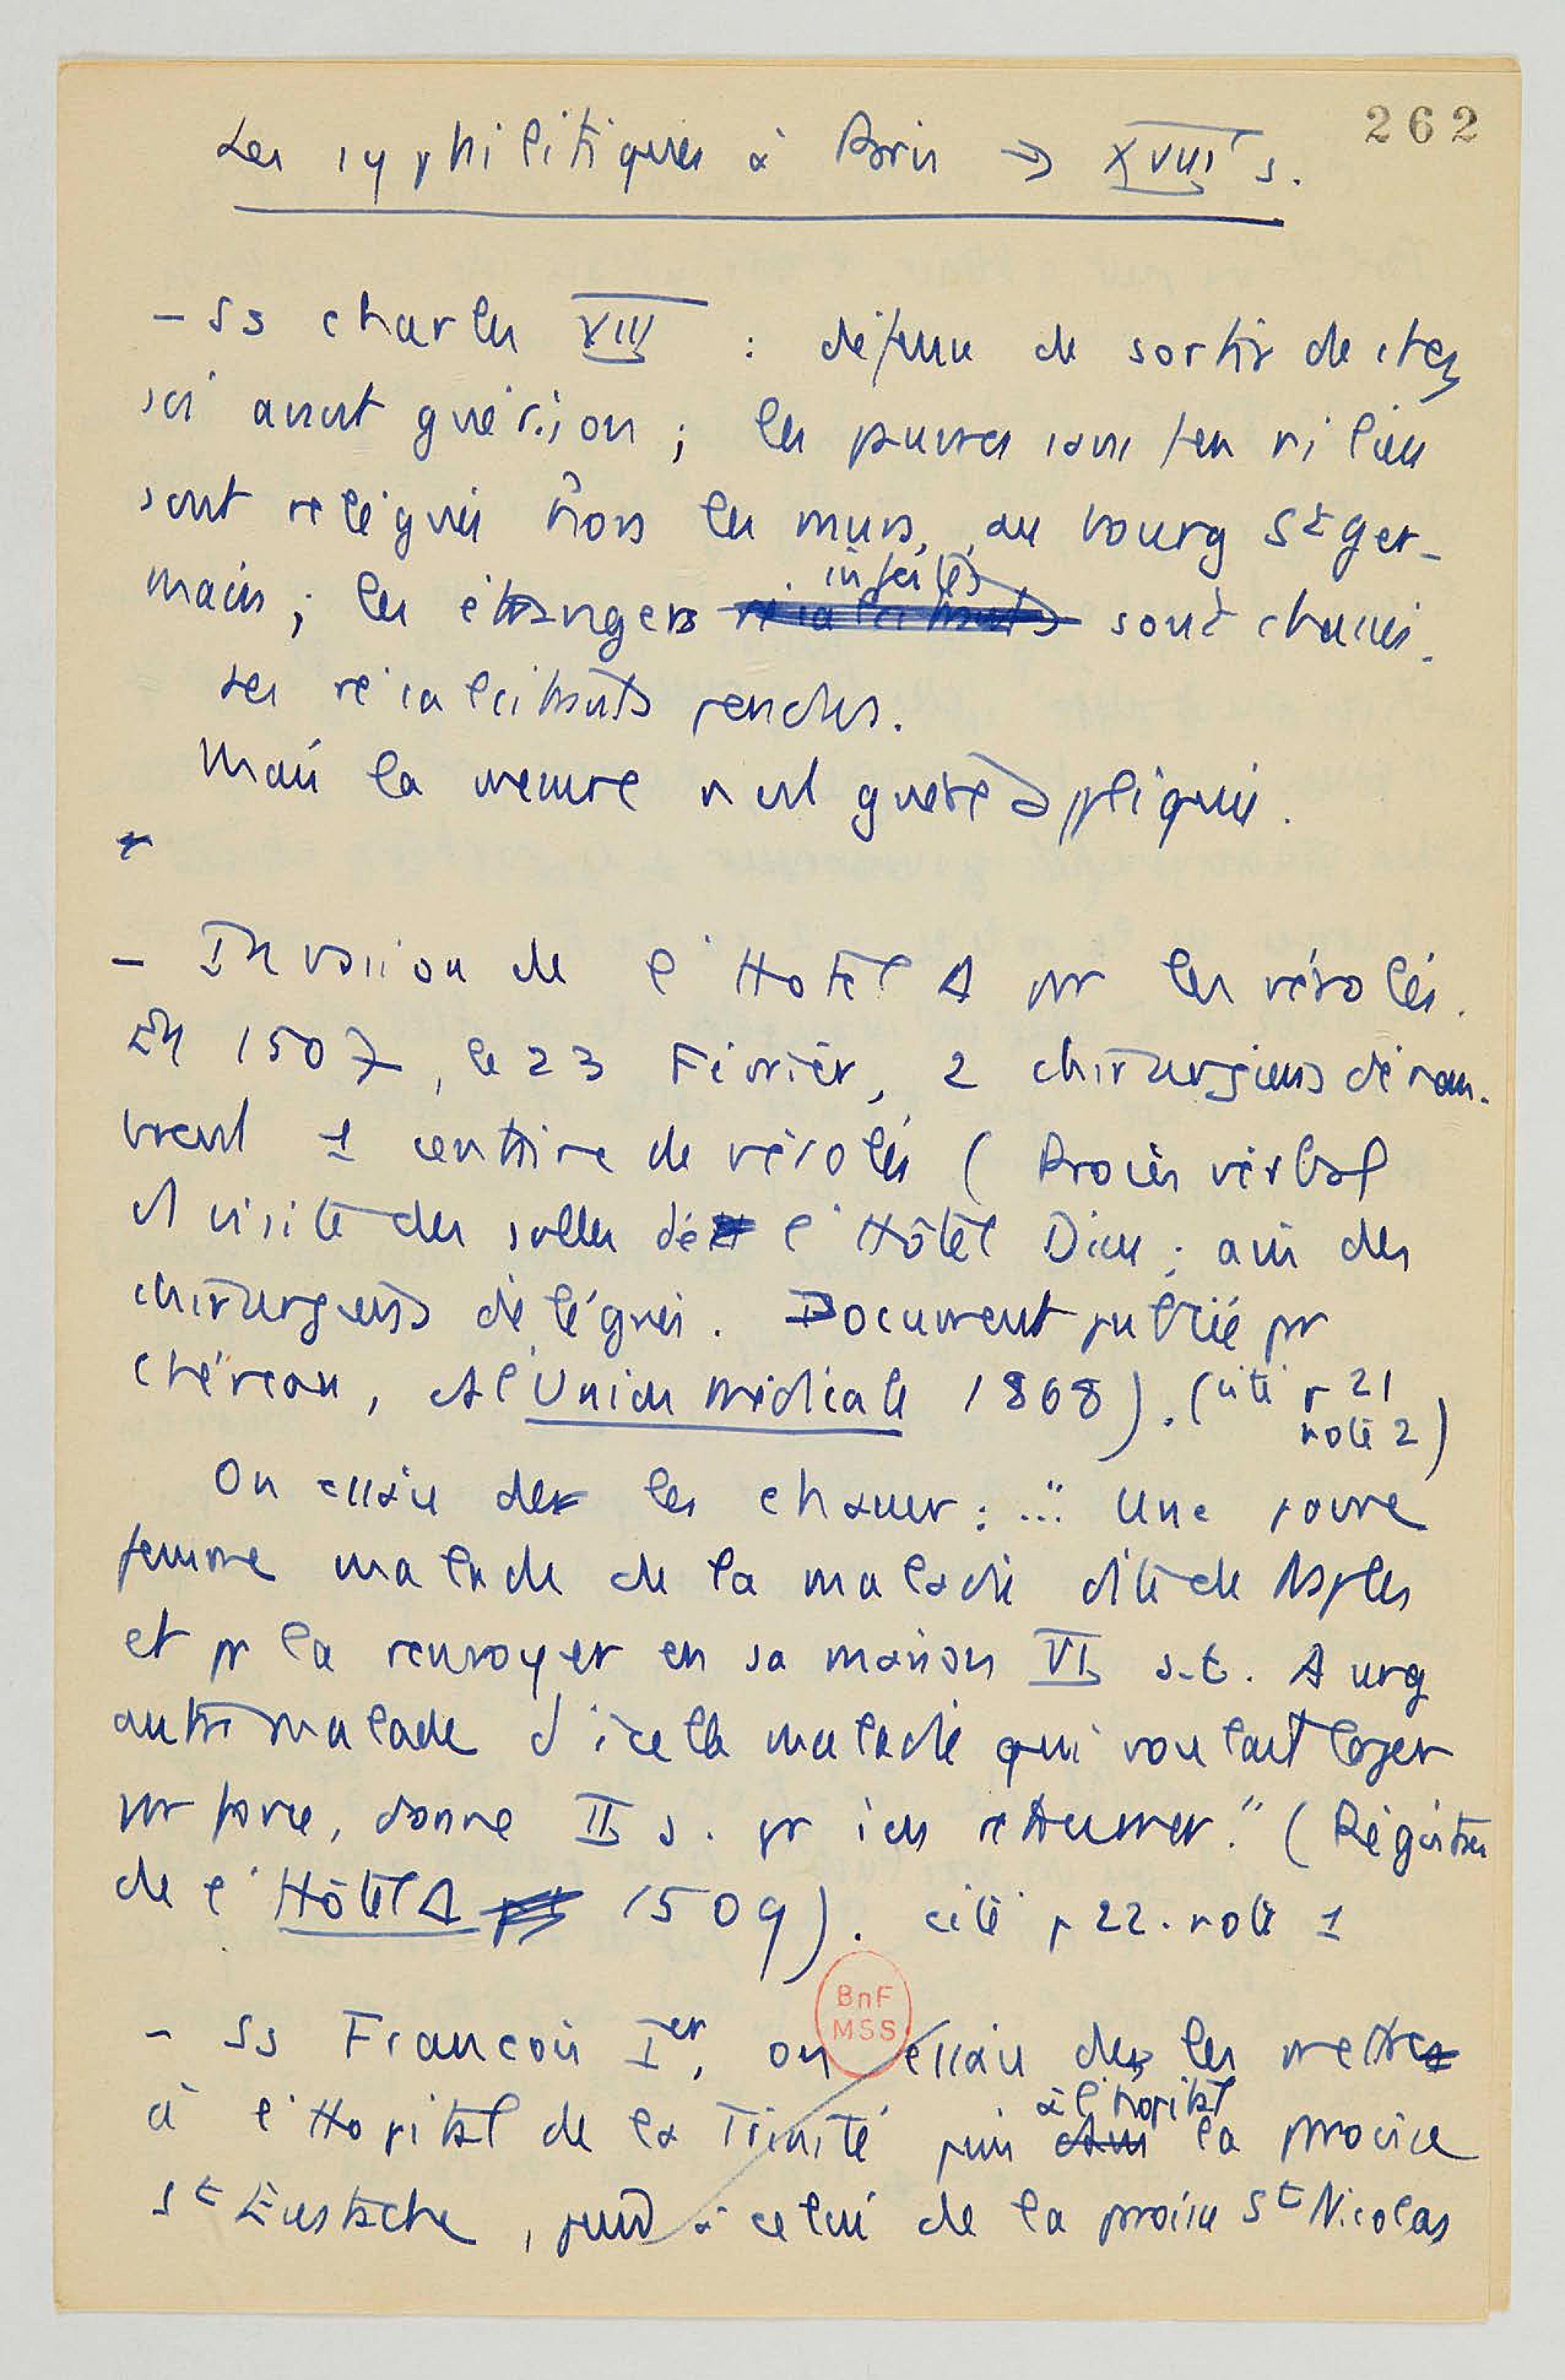 262
Les syphilitiques à Paris → XVIII s.
- Ss Charles XIII : défense de sortir de chez
soi avant guérison ; les pauvres sans feu ni lieu
sont relégués hors les murs, au bourg St Ger-
main ; les étrangers infectés sont chassés.
Les récalcitrants pendus.
Mais la mesure n'est guère appliquée.
- Invasion de l'Hotel Δ par les vérolés.
En 1507, le 23 Février, 2 chirurgiens décou-
vrent 1 centaine de vérolés (Procès verbal
et visite des salles de l'Hôtel Dieu ; avis des
chirurgiens délégués. Document publié par
Chéreau, Δ l'Union médicale 1868). (cité p 21
note 2)
On essaie de les chasser : ... " Une povre
femme malade de la maladie dite de Naples
et pr la renvoyer en sa maison VI s.t. A ung
autre malade d'icelle maladie qui voulait loger
par force, donné II s. pr s'en retourner." (Registres
de l'Hôtel Δ 1509). cité p 22. note 1
BnF
MSS
- Ss Francois Ier, on essaie de les mettre
à l'Hopital de la Trinité puis à l'hopital la paroisse
St Eustache, puis à celui de la paroisse St Nicolas